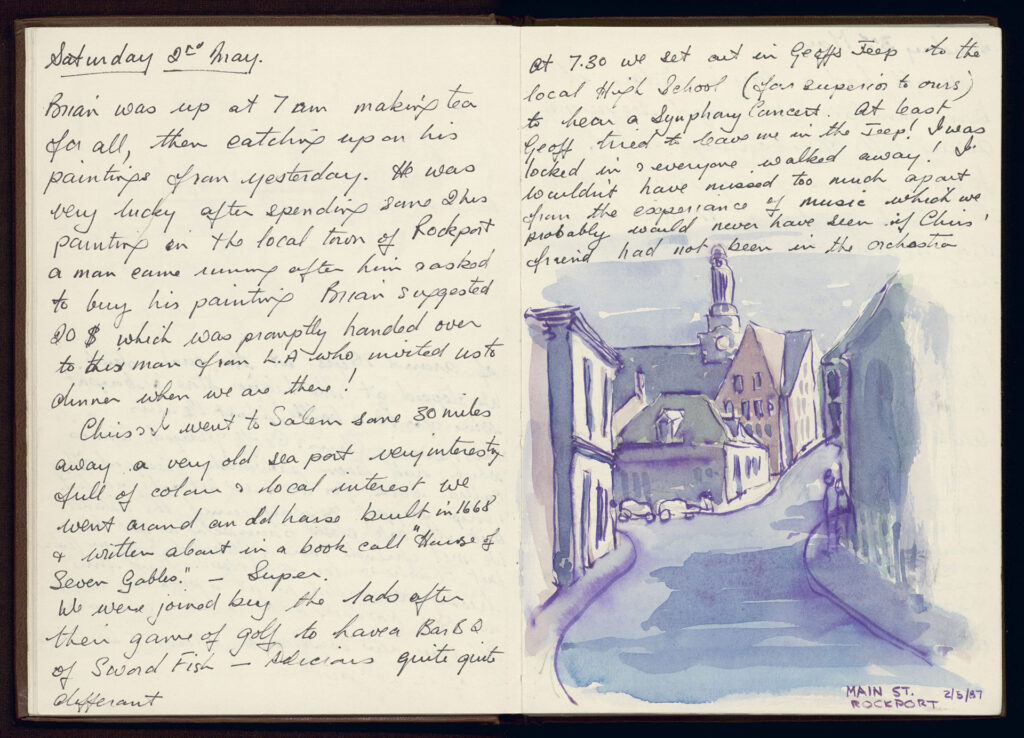 Saturday 2nd May.
Brian was up at 7 am making tea
for all, then catching up on his
paintings from yesterday. He was
very lucky after spending some 2 hrs
painting in the local town of Rockport
a man came running after him & asked
to buy his painting Brian suggested
20 $ which was promptly handed over
to this man from L.A who invited us to
dinner when we are there!
Chris & I went to Salem some 30 miles
away a very old sea port very interesting
full of colour & local interest we
went around an old house built in 1668
& written about in a book call "House of
Seven Gables." — Super.
We were joined buy the lads after
their game of golf to have a Bar B Q
of Sword Fish — delicious quite quite
differant
At 7.30 we set out in Geoffs Jeep to the
local High School (far superior to ours)
to hear a Symphony Concert. At least
Geoff tried to leave me in the Jeep! I was
locked in & everyone walked away! I
wouldn't have missed too much apart
from the experiance of music which we
probably would never have seen if Chris'
friend had not been in the orchestra
MAIN ST. 2/5/87
ROCKPORT